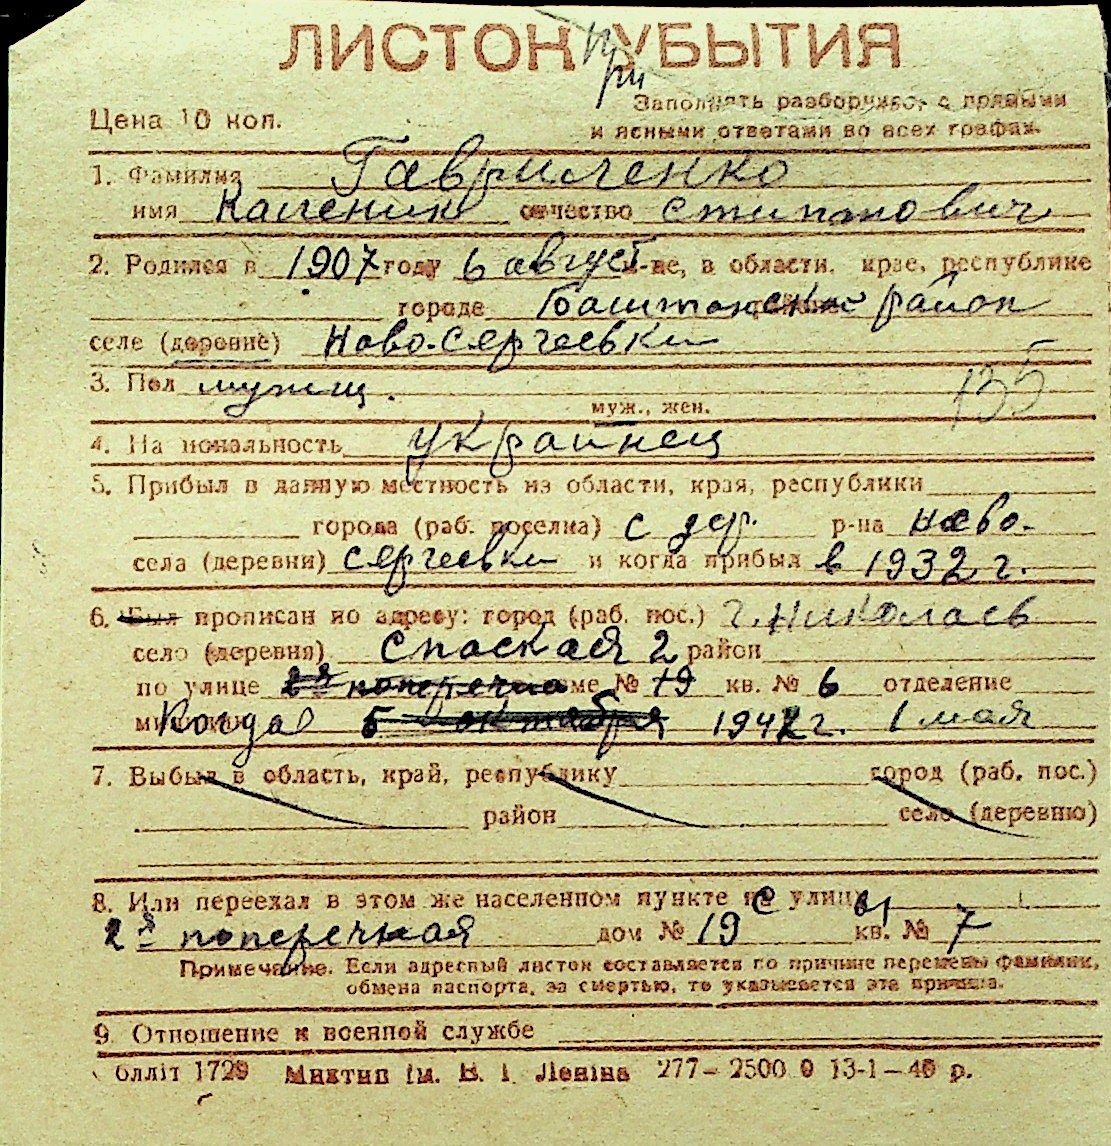 ЛИСТОК УБЫТИЯ
при
Цена 10 коп.
Заполнять разборчиво, с прямыми
и ясными ответами во всех графах.
1. Фамилия Гавриленко
имя Каленик отчество стипанович
2. Родился в 1907 году 6 август м-це, в области, крае, республике
городе Баштанский район
селе (деревне) Ново-Сергеевки
3. Пол мужщ.
муж., жен.
135
4. Национальность украинец
5. Прибыл в данную местность из области, края, республики
города (раб. поселка) с дер. р-на Ново-
села (деревни) Сергеевки и когда прибыл в 1932 г.
6. Был прописан по адресу: город (раб. пос.) г. Николаев
село (деревня) Спаская 2 район
по улице 2я поперечна доме № 19 кв. № 6 отделение
Когда 5 октября 1941 г. 1 мая
7. Выбыл в область, край, республику город (раб. пос.)
район село (деревню)
8. Или переехал в этом же населенном пункте с улицы
2я поперечная дом № 19 кв. № 7
Примечание. Если адресный листок составляется по причине перемены фамилии,
обмена паспорта, за смертью, то указывается эта причина.
9. Отношение к военной службе
Облліт 1729 Миктип ім. В. І. Леніна 277—2500 0 13-1—40 р.